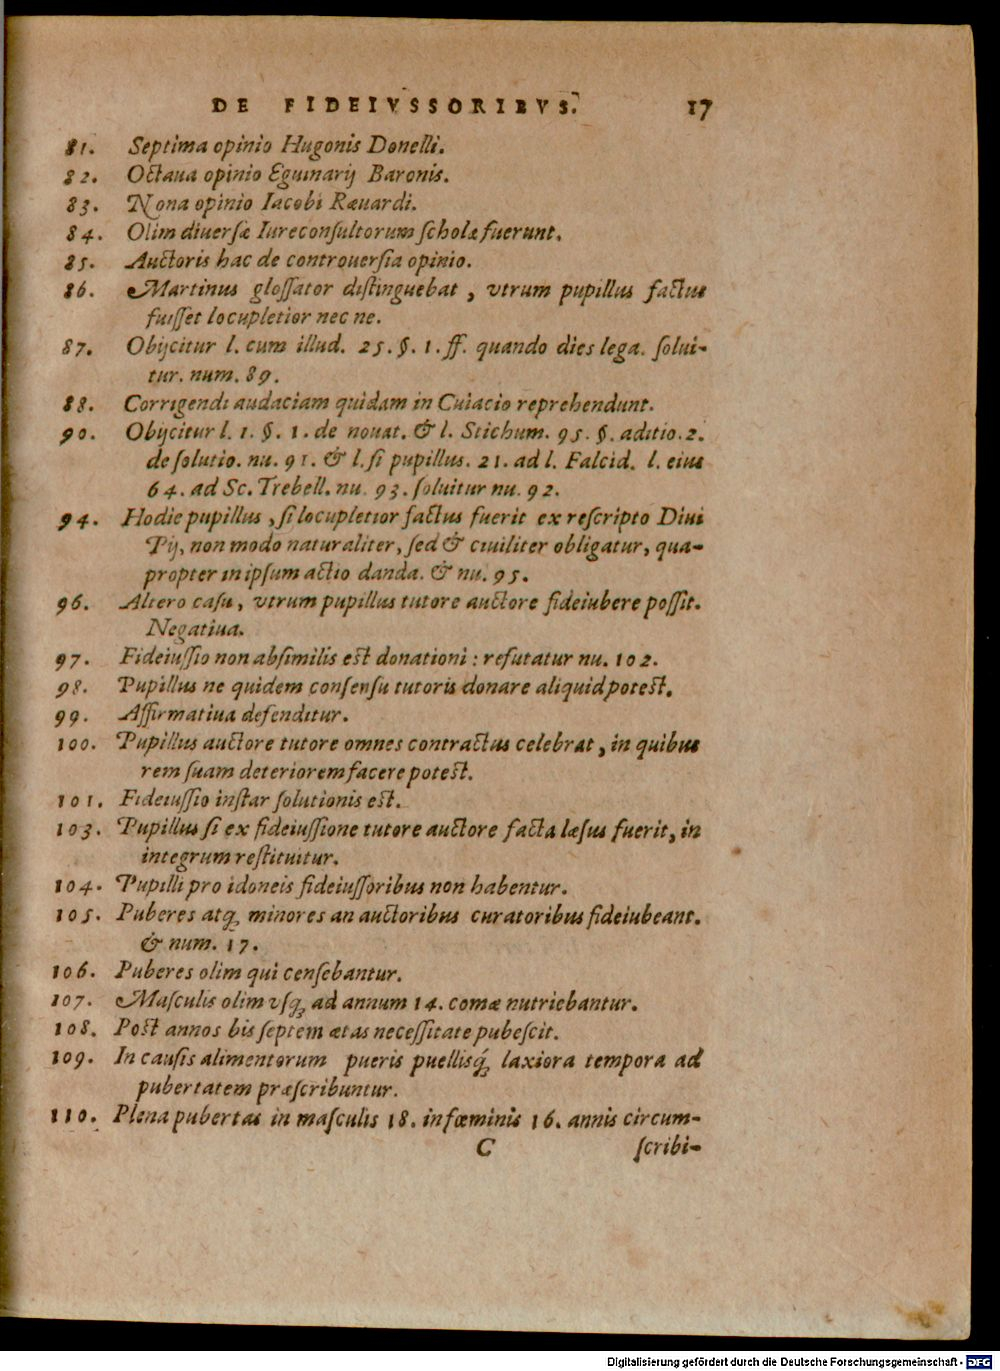 DE FIDEIVSSORIBVS. 17
81. Septima opinio Hugonis Donelli.
82. Octaua opinio Eguinarij Baronis.
83. Nona opinio Iacobi Ræuardi.
84. Olim diuersæ Iureconsultorum scholæ fuerunt.
85. Auctoris hac de controuersia opinio.
86. Martinus glossator distinguebat, vtrum pupillus factus
fuisset locupletior nec ne.
87. Obijcitur l. cum illud. 25. §. 1. ff. quando dies lega. solui-
tur. num. 89.
88. Corrigendi audaciam quidam in Cuiacio reprehendunt.
90. Obijcitur l. 1. §. 1. de nouat. & l. Stichum. 95. §. aditio. 2.
de solutio. nu. 91. & l. si pupillus. 21. ad l. Falcid. l. eius
64. ad Sc. Trebell. nu. 93. soluitur nu. 92.
94. Hodie pupillus, si locupletior factus fuerit ex rescripto Diui
Pij, non modo naturaliter, sed & ciuiliter obligatur, qua-
propter in ipsum actio danda. & nu. 95.
96. Altero casu, vtrum pupillus tutore auctore fideiubere possit.
Negatiua.
97. Fideiussio non absimilis est donationi: refutatur nu. 102.
98. Pupillus ne quidem consensu tutoris donare aliquid potest.
99. Affirmatiua defenditur.
100. Pupillus auctore tutore omnes contractus celebrat, in quibus
rem suam deteriorem facere potest.
101. Fideiussio instar solutionis est.
103. Pupillus si ex fideiussione tutore auctore facta læsus fuerit, in
integrum restituitur.
104. Pupilli pro idoneis fideiussoribus non habentur.
105. Puberes atq; minores an auctoribus curatoribus fideiubeant.
& num. 17.
106. Puberes olim qui censebantur.
107. Masculis olim vsq; ad annum 14. comæ nutriebantur.
108. Post annos bis septem ætas necessitate pubescit.
109. In causis alimentorum pueris puellisq́; laxiora tempora ad
pubertatem præscribuntur.
110. Plena pubertas in masculis 18. in fœminis 16. annis circum-
C scribi-
Digitalisierung gefördert durch die Deutsche Forschungsgemeinschaft - DFG